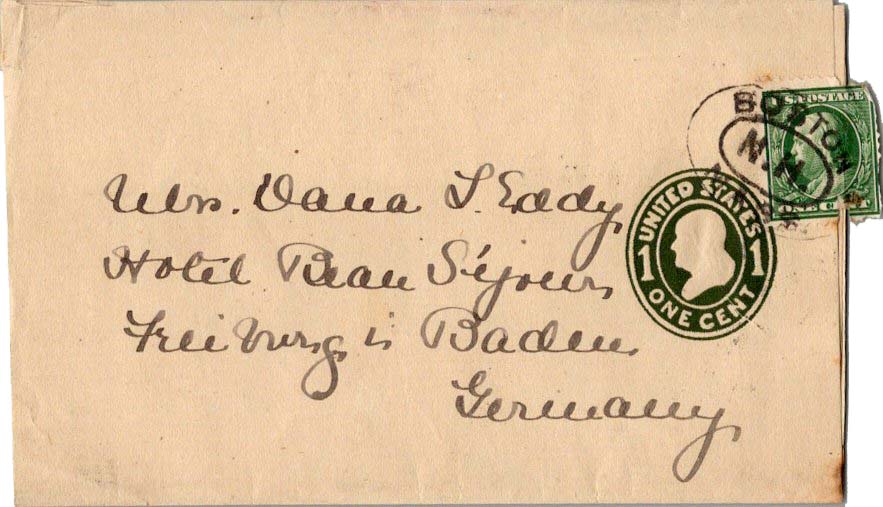 U.S. POSTAGE
BOSTON
N.M.
MASS.
Mrs. Dana S. Eddy,
UNITED STATES
1 1
ONE CENT
Hotel Beau Séjour,
Freiburg i Baden
Germany